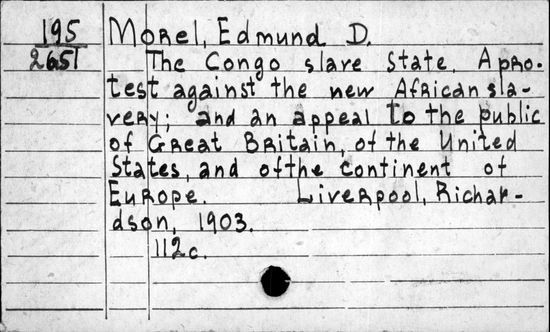 195 Morel, Edmund D.
2651 The Congo slave State. A pro-
test against the new African sla-
very; and an appeal to the public
of Great Britain, of the United
States, and of the continent of
Europe. Liverpool, Richar-
dson, 1903.
112c.